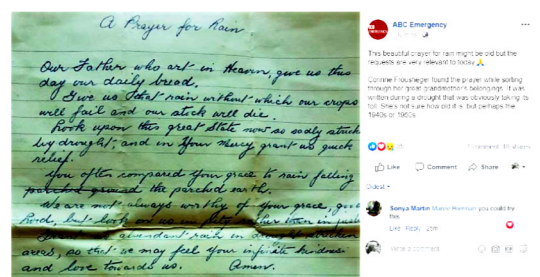 A Prayer for Rain
Our Father who art in Heaven, give us this
day our daily bread.
Give us that rain without which our crops
will fail and our stock will die.
Look upon this great state now so sadly struck
by drought; and in Your mercy, grant us quick
relief.
You often compared Your grace to rain falling
parched ground the parched earth.
We are not always worthy of Your grace, give
heed, but look on us in
abundant rain in
areas, so that we may feel Your infinite kindness
and love towards us. Amen.
ABC Emergency
This beautiful prayer for rain might be old but the
requests are very relevant to today
Corinne found the prayer while sorting
through her great grandmother's belongings. It was
written during a drought that was obviously taking its
toll. She's not sure how old it is but perhaps the
1940s or 1950s
1 comment
Like Comment Share
Oldest
Sonya Martin you could try
this
Like Reply
Write a comment